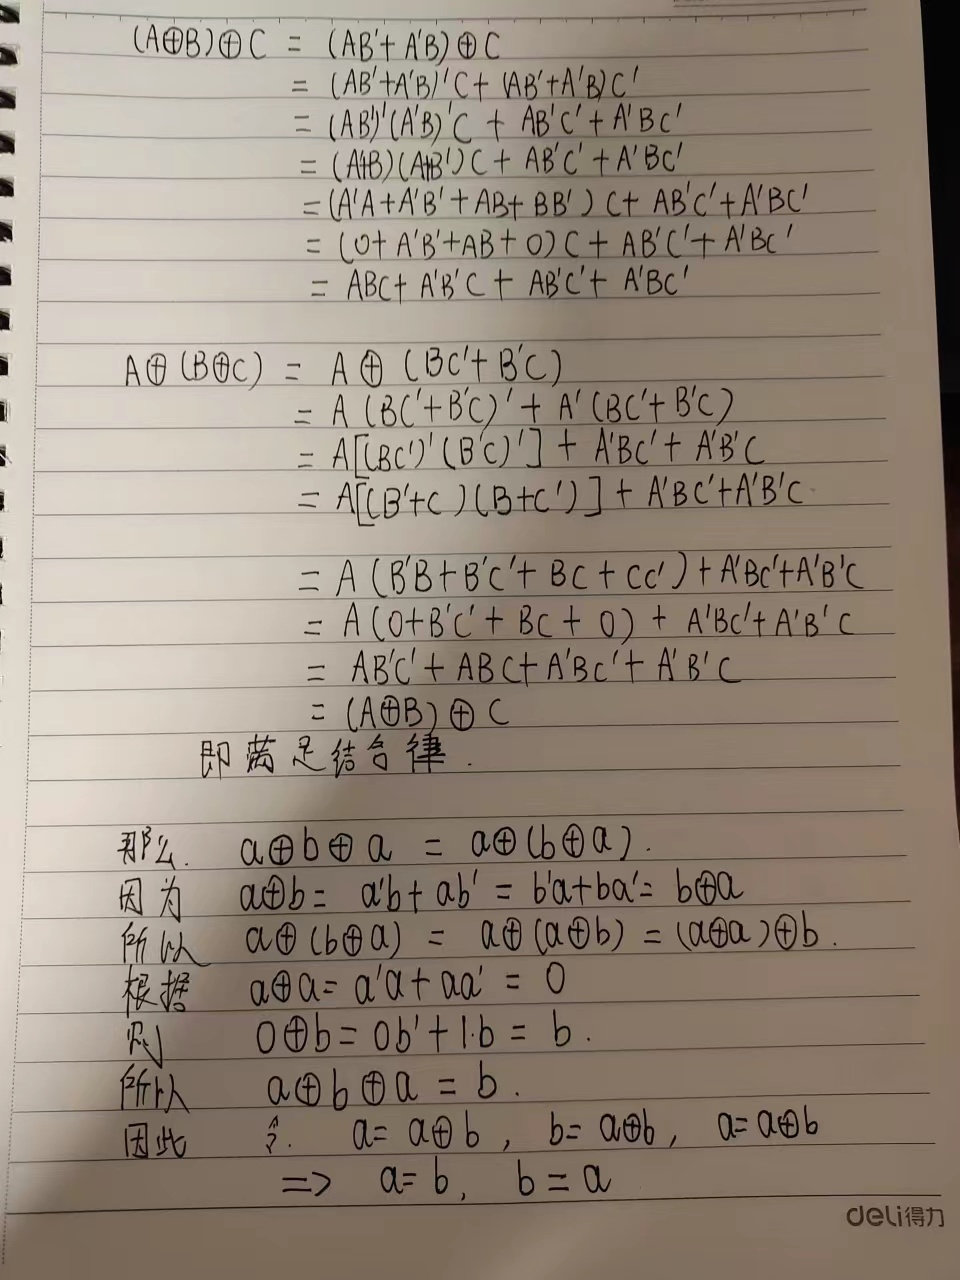 (A⊕B)⊕C = (AB'+A'B)⊕C
= (AB'+A'B)'C+(AB'+A'B)C'
= (AB')'(A'B)'C + AB'C'+A'BC'
= (A'+B)(A+B')C+AB'C'+A'BC'
=(A'A+A'B'+AB+BB')C+AB'C'+A'BC'
= (0+A'B'+AB+0)C+AB'C'+A'BC'
= ABC+A'B'C+AB'C'+A'BC'
A⊕(B⊕C) = A⊕(BC'+B'C)
= A(BC'+B'C)'+A'(BC'+B'C)
= A[(BC')'(B'C)']+A'BC'+A'B'C
= A[(B'+C)(B+C')]+A'BC'+A'B'C
= A(B'B+B'C'+BC+CC')+A'BC'+A'B'C
= A(0+B'C'+BC+0)+A'BC'+A'B'C
= AB'C'+ABC+A'BC'+A'B'C
= (A⊕B)⊕C
即满足结合律.
那么. a⊕b⊕a = a⊕(b⊕a).
因为 a⊕b= a'b+ab'=b'a+ba'= b⊕a
所以 a⊕(b⊕a) = a⊕(a⊕b)=(a⊕a)⊕b.
根据 a⊕a=a'a+aa' = 0
则 0⊕b=0b'+1·b=b.
所以 a⊕b⊕a=b.
因此 令. a=a⊕b, b=a⊕b, a=a⊕b
=> a=b, b=a
deli得力